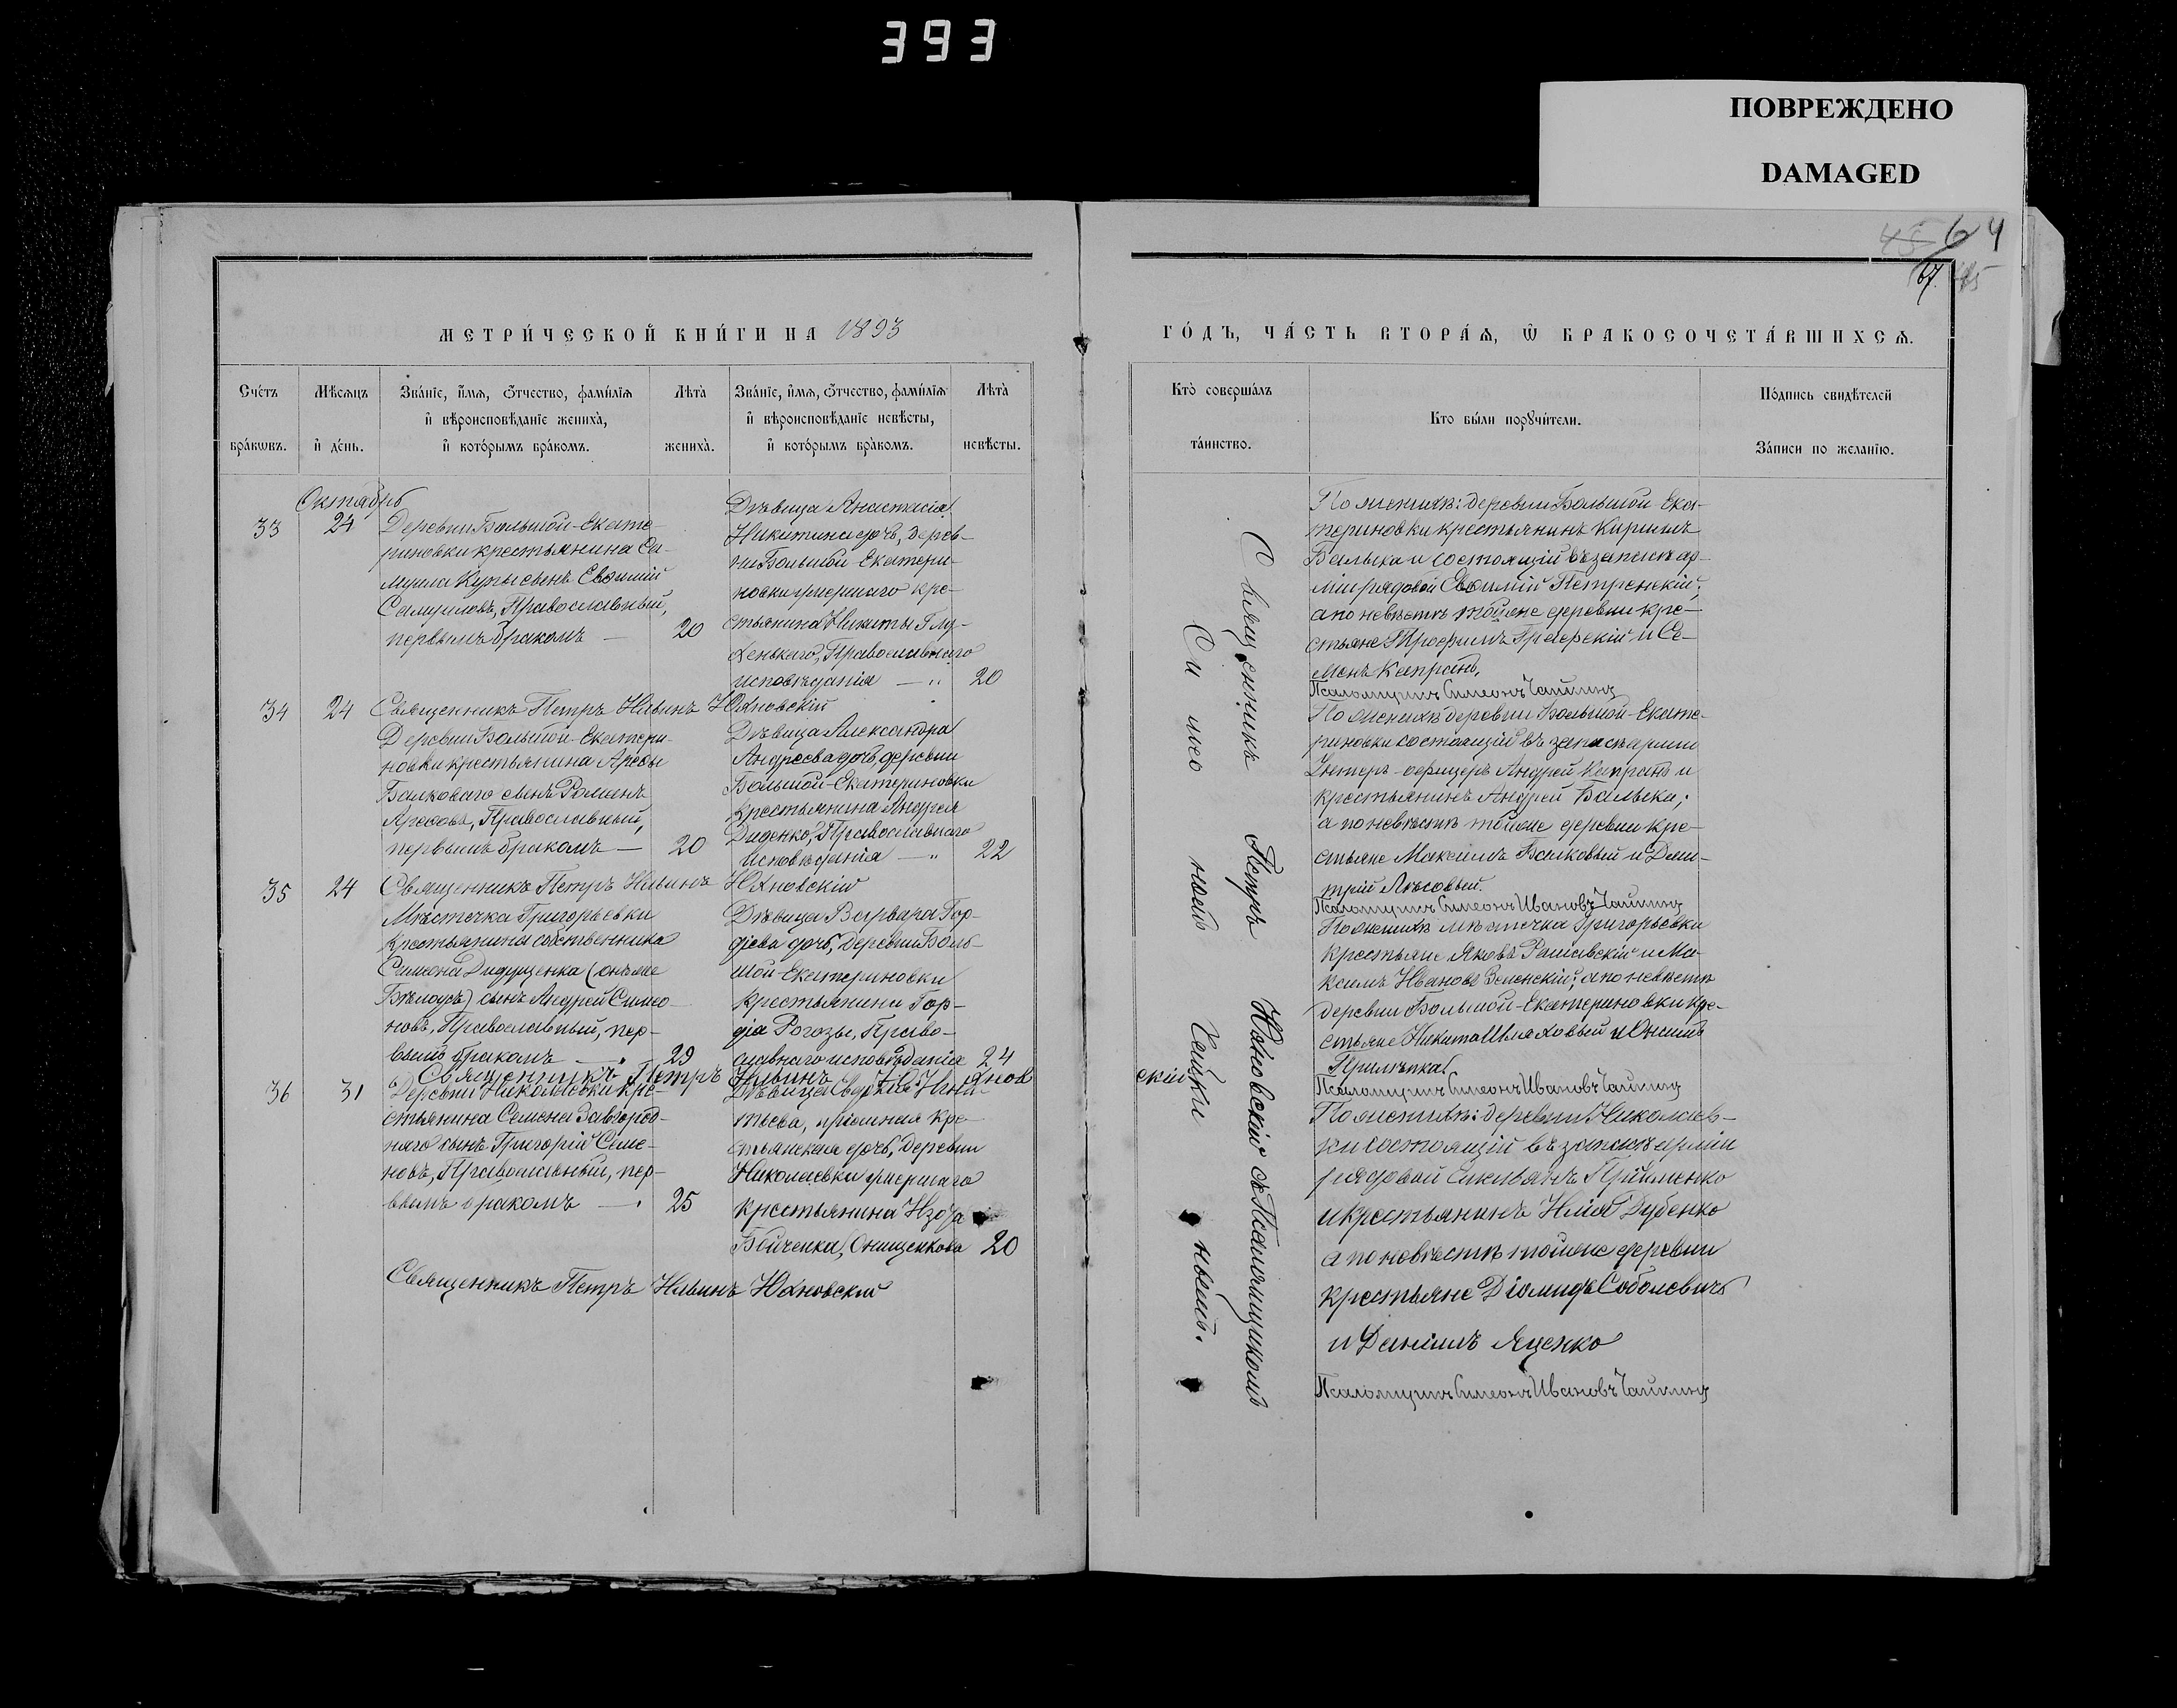 393
ПОВРЕЖДЕНО
DAMAGED
64
МЕТРИ́ЧЕСКОЙ КНИ́ГИ НА 1893
ГО́ДЪ, ЧА́СТЬ ВТОРА́Ѧ, Ѿ БРАКОСОЧЕТА́ВШИХСѦ.
Сче́тъ бра́кѡвъ.
Мѣ́сѧцъ и҆ де́нь.
Зва́нїе, и҆́мѧ, ѻ҆́тчество, фамѝлїѧ
и҆ вѣроисповѣ́данїе жениха̀,
и҆ кото́рымъ бра́комъ.
Лѣта̀ жениха̀.
Зва́нїе, и҆́мѧ, ѻ҆́тчество, фамѝлїѧ
и҆ вѣроисповѣ́данїе невѣ́сты,
и҆ кото́рымъ бра́комъ.
Лѣта̀ невѣ́сты.
Кто̀ соверша́лъ
та́инство.
Кто бы́ли порꙋчи́тели.
По́дпись свидѣ́телей
За́писи по жела́нїю.
Октябрь
33
24
Деревни Большой-Екате-
риновки крестьянина Са-
муила Купы сынъ Евѳимій
Самуиловъ, Православный,
первымъ бракомъ —
20
Дѣвица Анастасія
Никитина дочь, дерев-
ни Большой-Екатери-
новки умершаго кре-
стьянина Никиты Глу-
хенькаго, Православнаго
исповѣданія — "
20
По женихѣ: деревни Большой-Ека-
териновки крестьянинъ Кириллъ
Балыка и состоящій въ запасѣ ар-
міи рядовой Евѳимій Петренскій;
а по невѣстѣ тойже деревни кре-
стьяне Трофимъ Граерскій и Се-
менъ Капранъ.
Псаломщикъ Симеонъ Чайкинъ
Священникъ Петръ Ильинъ Юхновскій
34
24
Деревни Большой-Екатери-
новки крестьянина Арефы
Балковаго сынъ Романъ
Арефовъ, Православный,
первымъ бракомъ —
20
Дѣвица Александра
Андреева дочь, деревни
Большой-Екатериновки
крестьянина Андрея
Диденко, Православнаго
исповѣданія — "
22
По женихѣ деревни Большой-Екате-
риновки состоящій въ запасѣ арміи
Унтеръ-офицеръ Андрей Капранъ и
крестьянинъ Андрей Балыка;
а по невѣстѣ тойже деревни кре-
стьяне Максимъ Балковый и Дми-
трій Лѣсовый.
Псаломщикъ Симеонъ Ивановъ Чайкинъ
Священникъ Петръ Ильинъ Юхновскій
35
24
Мѣстечка Григорьевки
крестьянина собственника
Симеона Дидущенка (онъ же
Бѣлоусъ) сынъ Андрей Симео-
новъ, Православный, пер-
вымъ бракомъ —
29
Дѣвица Варвара Гор-
діева дочь, деревни Боль-
шой-Екатериновки
крестьянина Гор-
дія Рогозы, Право-
славнаго исповѣданія
24
По женихѣ мѣстечка Григорьевки
крестьяне Яковъ Рашавскій и Ма-
ксимъ Ивановъ Зеленскій; а по невѣстѣ
деревни Большой-Екатериновки кре-
стьяне Никита Шляховый и Онисимъ
Прилѣпка.
Псаломщикъ Симеонъ Ивановъ Чайкинъ
Священникъ Петръ Ильинъ Юхновскій
36
31
Деревни Николаевки кре-
стьянина Семена Завгород-
няго сынъ Григорій Семе-
новъ, Православный, пер-
вымъ бракомъ — "
25
тьева, пріемная кре-
стьянская дочь, деревни
Николаевки умершаго
крестьянина
Бойченка, Онищенкова
20
По женихѣ: деревни Николаев-
ки состоящій въ запасѣ арміи
рядовой Прійменко
и крестьянинъ Илія Дубенко
а по невѣстѣ тойже деревни
крестьяне Діомидъ Соболевичъ
и Даніилъ Яценко
Псаломщикъ Симеонъ Ивановъ Чайкинъ
Священникъ Петръ Ильинъ Юхновскій
Священникъ Петръ Юхновскій съ Псаломщикомъ
Симеономъ Чайкинымъ.